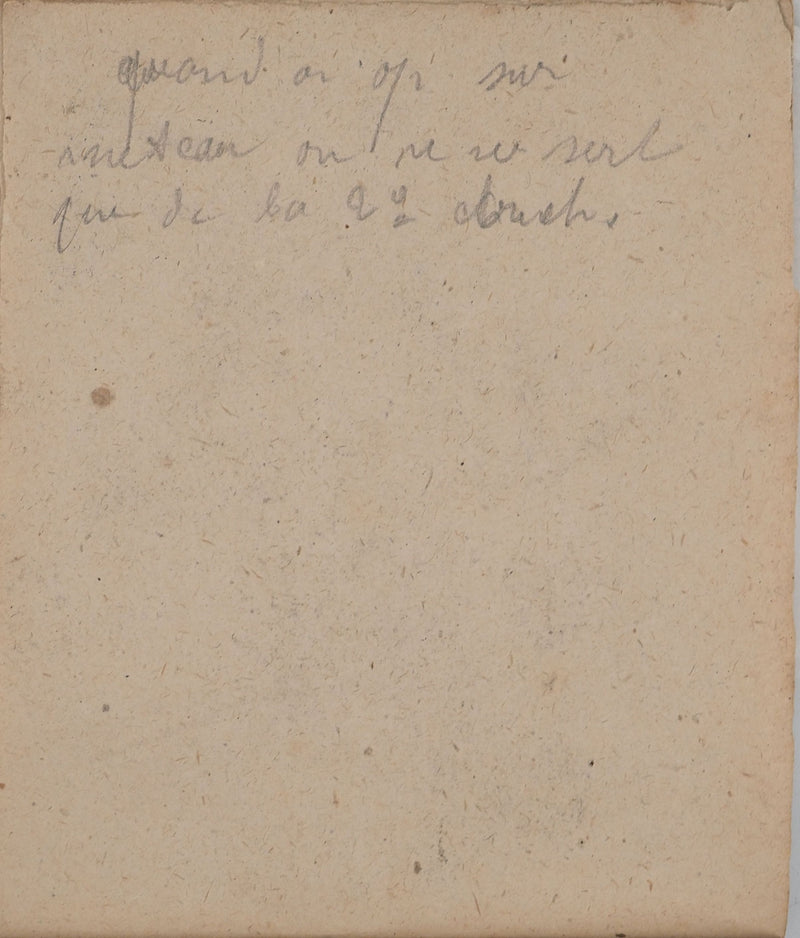 quand on op sur
un seau on ne se sert
que de la 2e